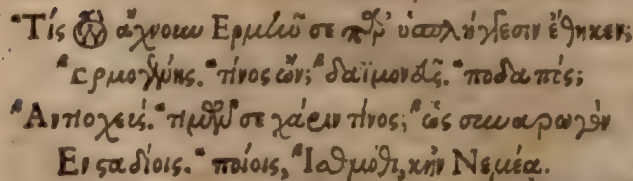 ᵃΤίς τὸν ἄχνουν Ερμῆν σε παρ' ὑσπλήγεσιν ἔθηκεν;
ᵃἙρμογένης. ᵃτίνος ὤν; ᵃδαϊμονᾶς. ᵃποδαπός;
ᵃΑντιοχεύς. ᵃτιμῶν σε χάριν τίνος; ᵃὡς συναρωγὸν
Εν σταδίοις. ᵃποίοις, ᵃἸσθμόθι, κἠν Νεμέα.